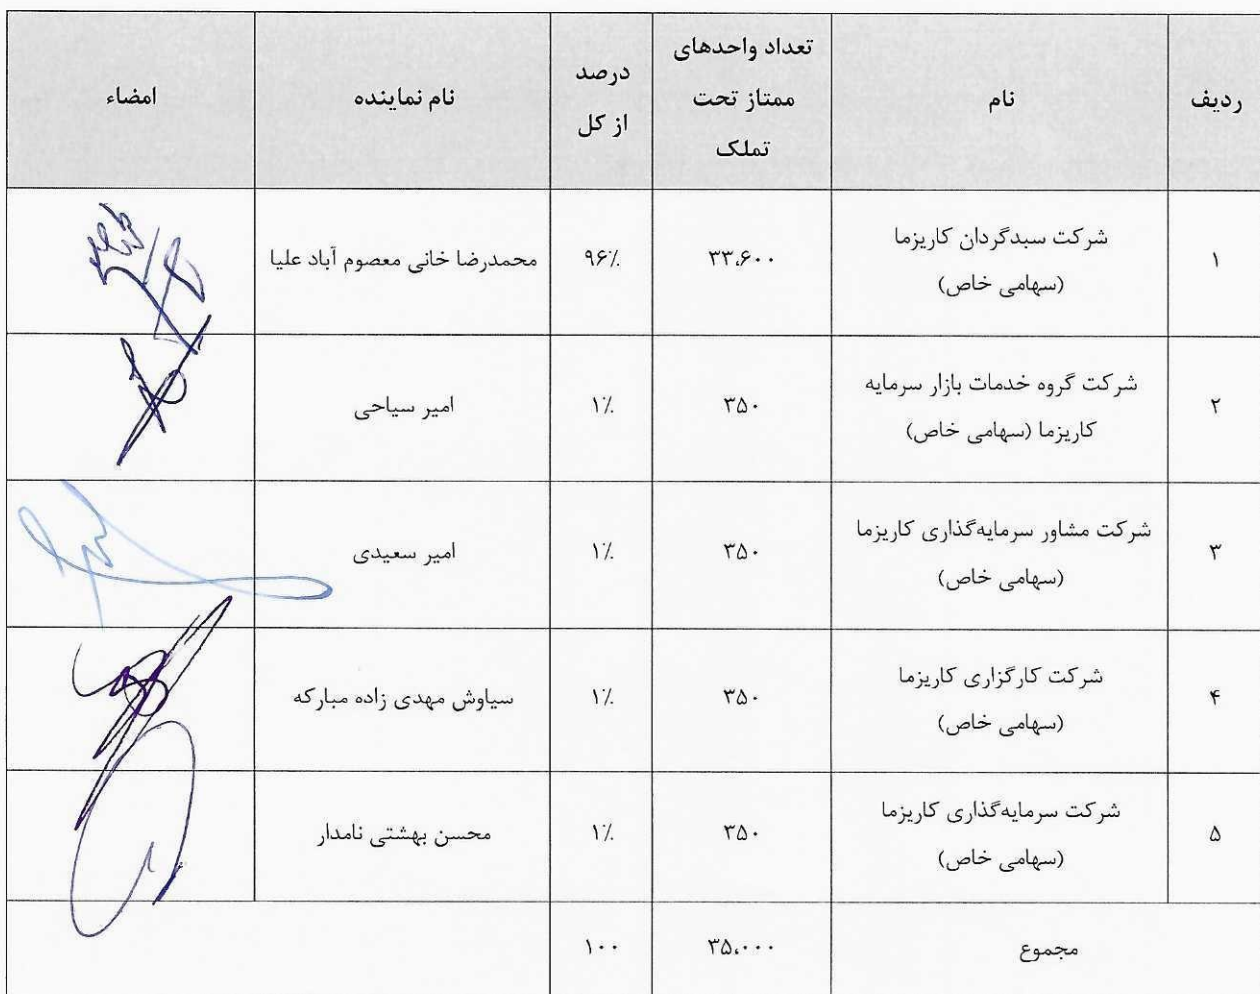 ردیف
نام
تعداد واحدهای
ممتاز تحت
تملک
درصد
از کل
نام نماینده
امضاء
۱
شرکت سبدگردان کاریزما
(سهامی خاص)
۳۳،۶۰۰
۹۶٪
محمدرضا خانی معصوم آباد علیا
۲
شرکت گروه خدمات بازار سرمایه
کاریزما (سهامی خاص)
۳۵۰
۱٪
امیر سیاحی
۳
شرکت مشاور سرمایه‌گذاری کاریزما
(سهامی خاص)
۳۵۰
۱٪
امیر سعیدی
۴
شرکت کارگزاری کاریزما
(سهامی خاص)
۳۵۰
۱٪
سیاوش مهدی زاده مبارکه
۵
شرکت سرمایه‌گذاری کاریزما
(سهامی خاص)
۳۵۰
۱٪
محسن بهشتی نامدار
مجموع
۳۵،۰۰۰
۱۰۰